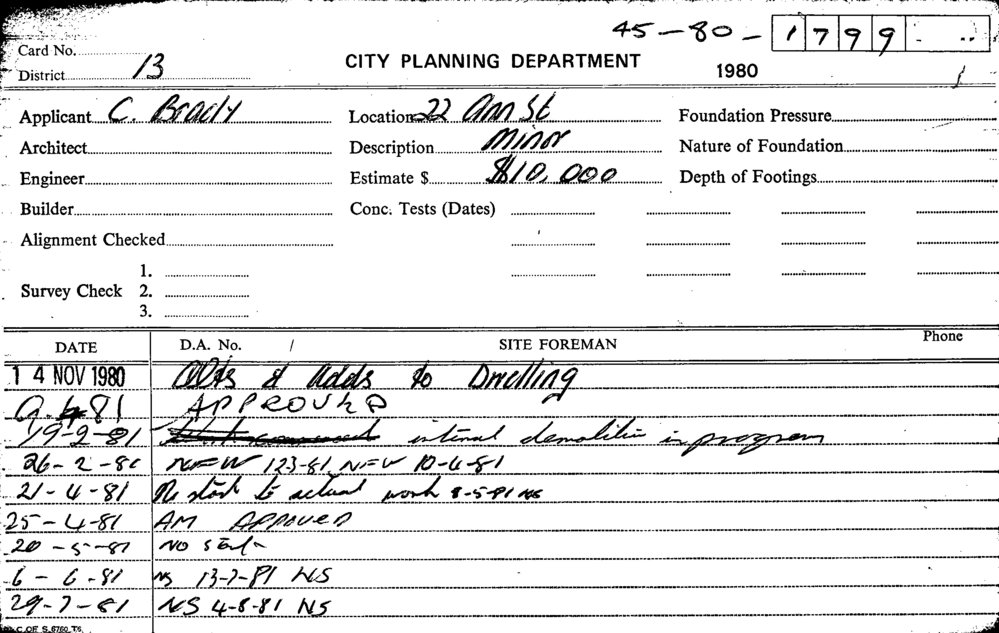 45-80- 1799
Card No.
District 13
CITY PLANNING DEPARTMENT
1980
Applicant C. Brady
Location 22 Ann St
Foundation Pressure
Architect
Description Minor
Nature of Foundation
Engineer
Estimate $ $10,000
Depth of Footings
Builder
Conc. Tests (Dates)
Alignment Checked
1.
Survey Check 2.
3.
DATE D.A. No. / SITE FOREMAN Phone
14 NOV 1980 Alts & Adds to Dwelling
81 APPROVED
19-2-81 internal demolition in progress
26-2-81 NFW 123-81 NFW 10-4-81
21-4-81 No start to actual work 8-5-81 NS
25-4-81 AM APPOVED
20-5-81 NO start
6-6-81 NS 13-7-81 NS
29-7-81 NS 4-8-81 NS
C. OF S. 6760